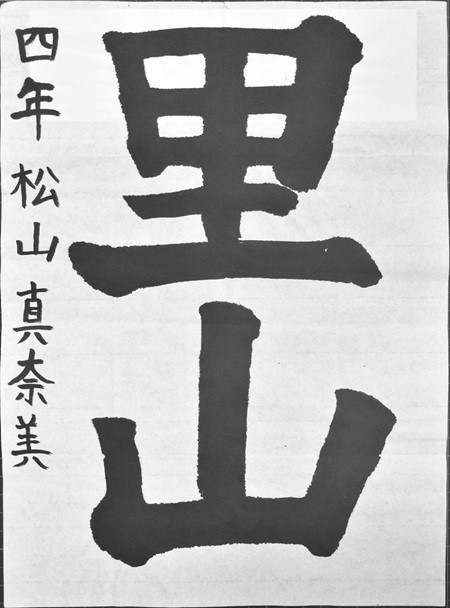 里山
四年 松山 真奈美